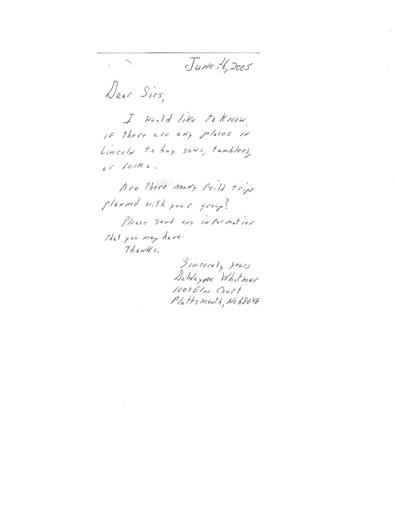 June 16, 2005
Dear Sirs,
I would like to know
if there are any places in
Lincoln to buy saws, tumblers,
or rocks.
Are there many feild trips
planned with your group?
Please send any information
that you may have
Thanks.
Sincerely yours
DeWayne Whitmer
1004 Elm Court
Plattsmouth, Ne 68048